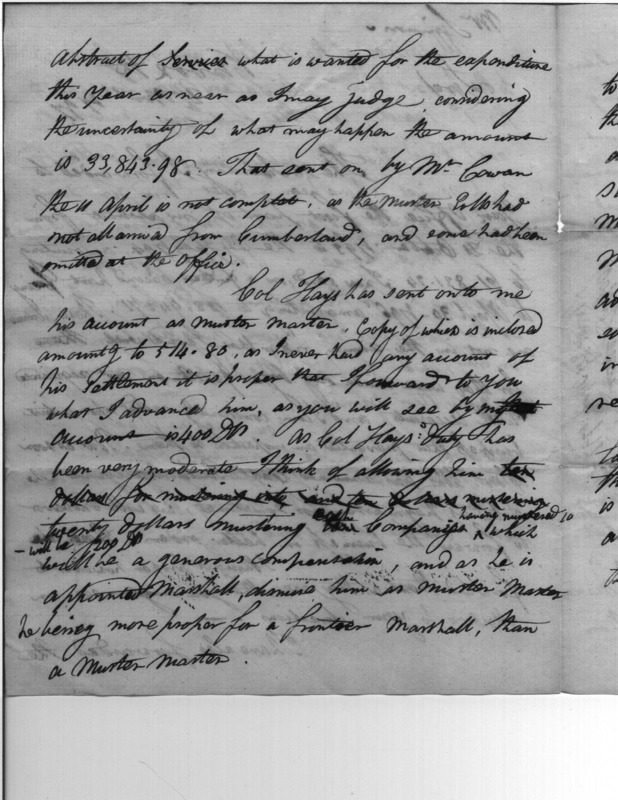 Mr
Abstract of Services what is wanted for the expenditure
this Year as near as I may judge, considering
the uncertainty of what may happen the amount
is 33,843.98. That sent on by Mr Cowan
the 11 April is not complet, as the Muster Rolls had
not all arriv'd from Cumberland, and some had been
omitted at the Office.
Col Hays has sent on to me
his account as muster master, Copy of which is inclosed
amountg to 514.80, as I never had any account of
his settlement it is proper that I forward to You
what I advanced him, as you will see by
account is 400 Drs. As Col Hays's Duty has
been very moderate I think of allowing him ten
dollars for mustering into and ten mustering
twenty dollars mustering each Companys having mustered 10 which
- will be 200 Ds
will be a generous compensation, and as he is
appointed Marshall, dismiss him as Muster Master
he being more proper for a frontier Marshall, than
a Muster Master.